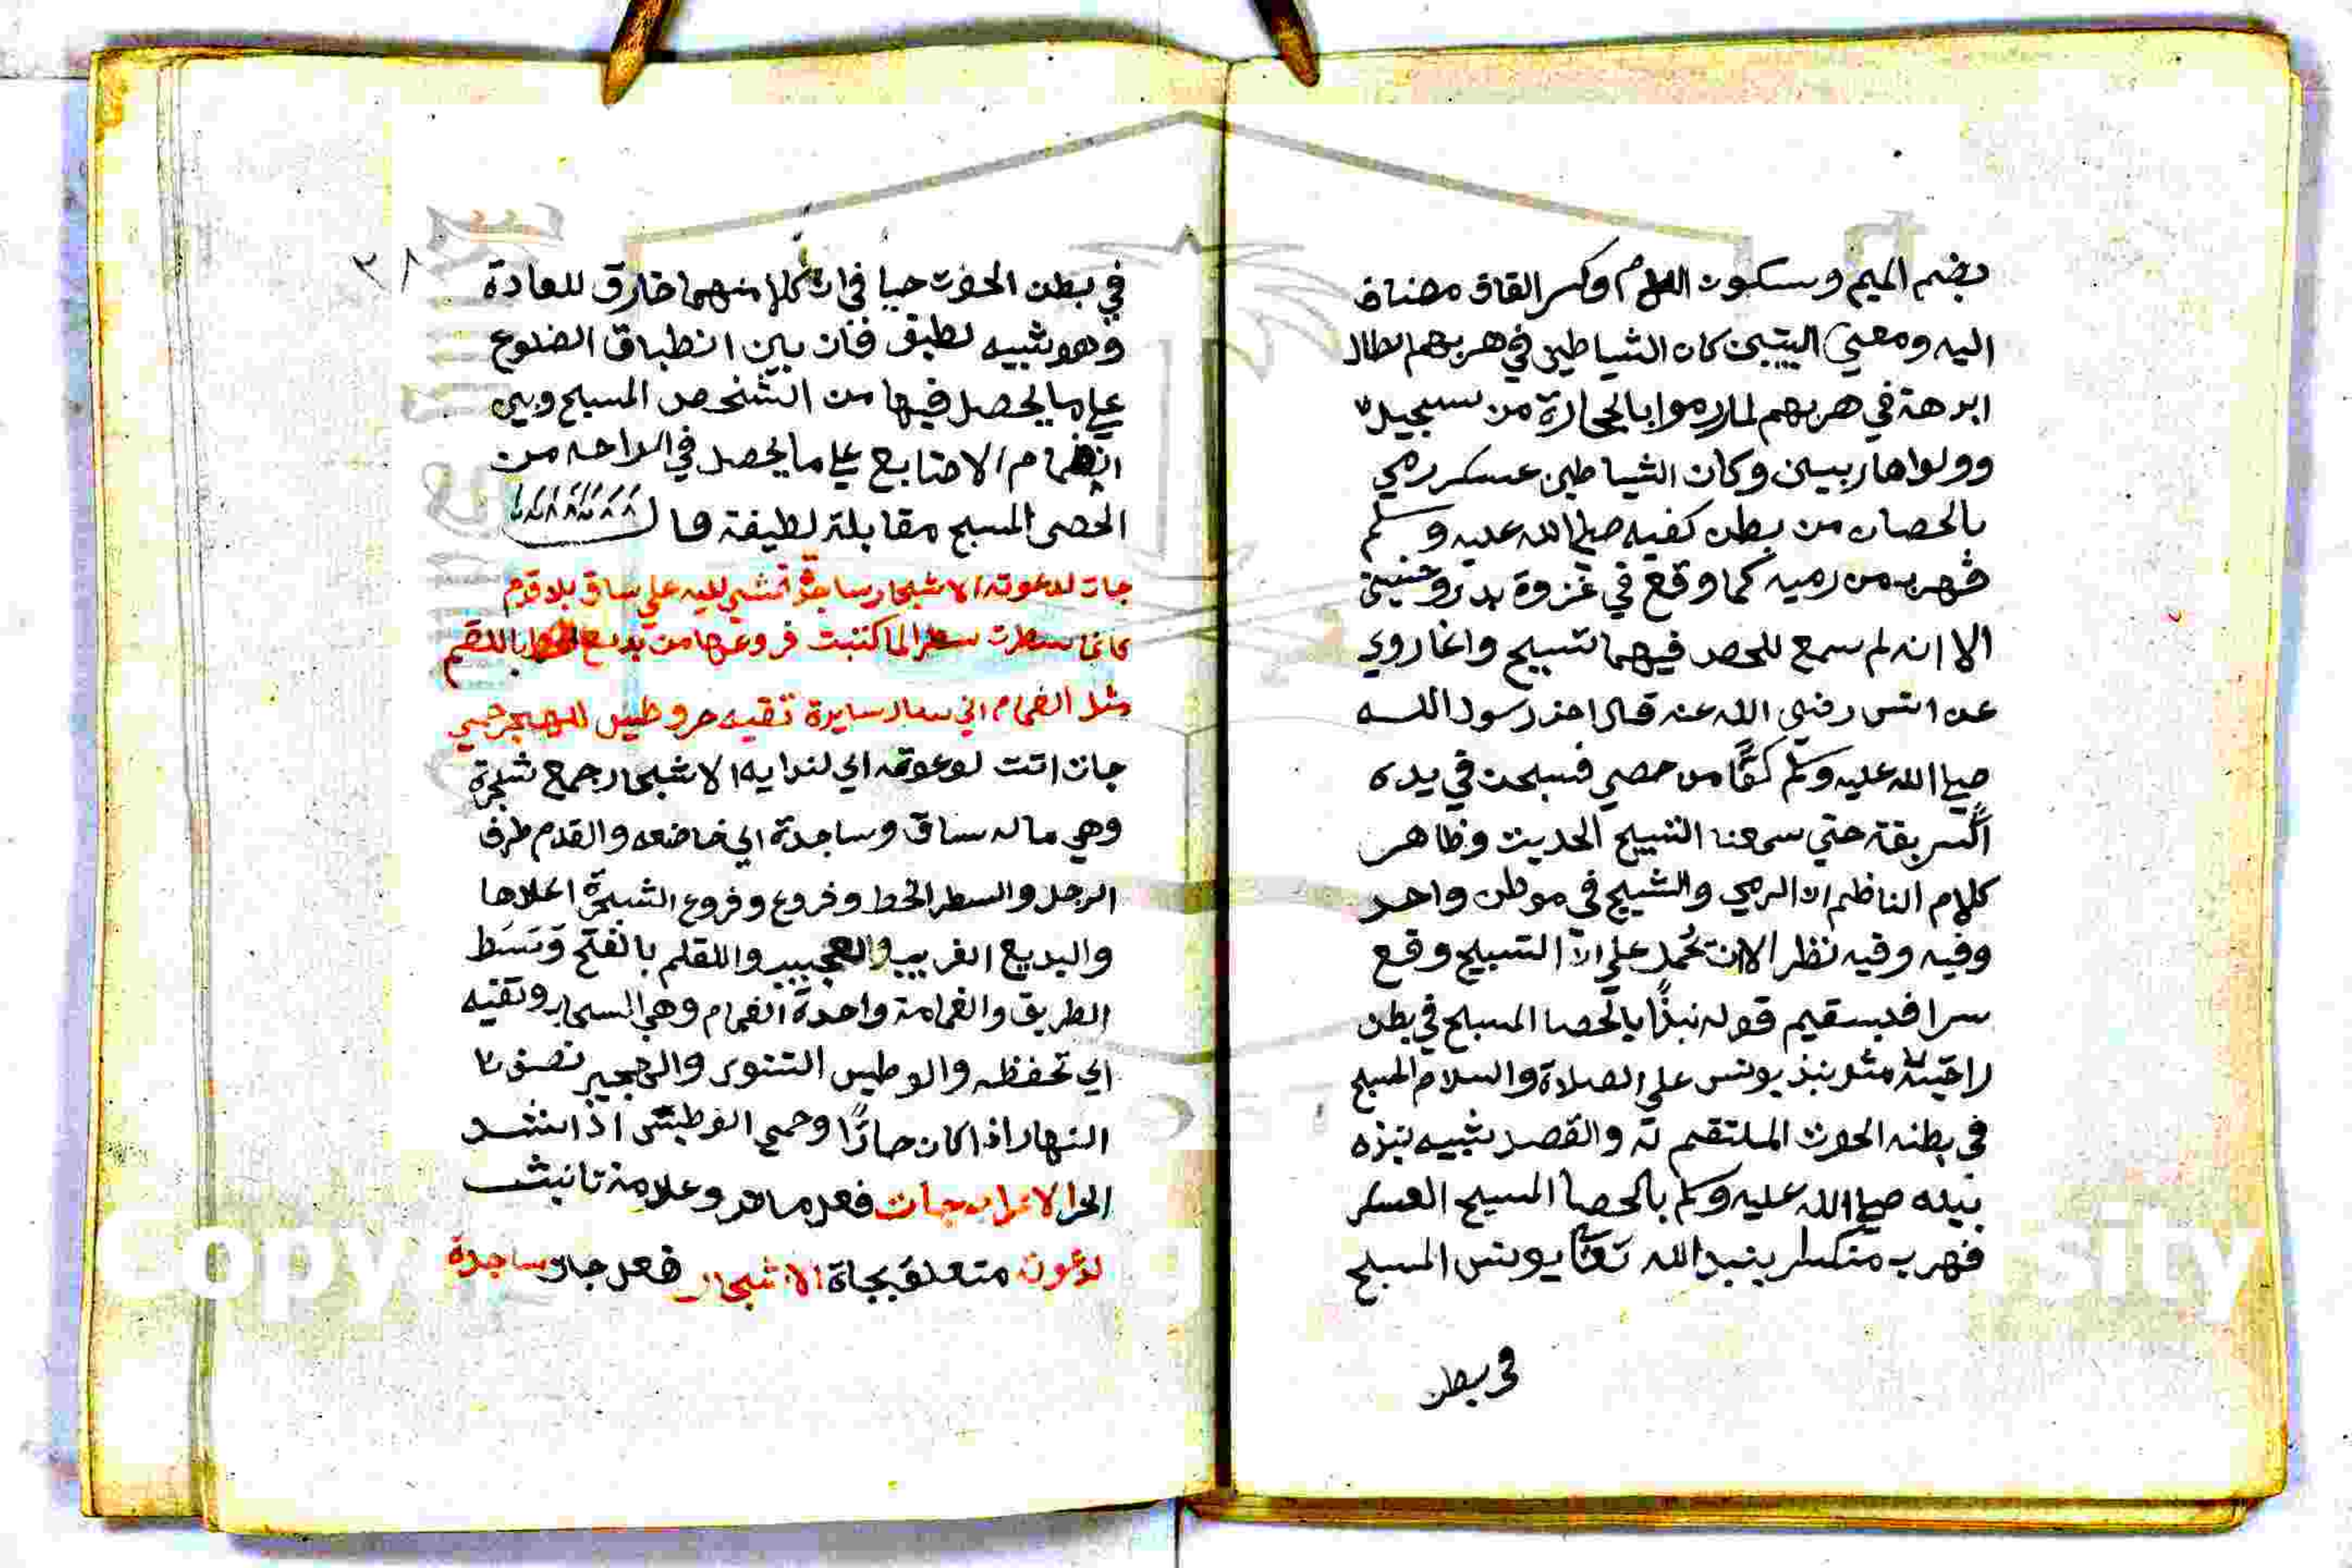 بضم الميم وسكون اللام وكسر القاف مضاف
اليه ومعني البيتين كان الشياطين في هربهم ابطال
ابرهة في هربهم لما رموا بالحجارة من سجيل
وولوا هاربين وكان الشياطين عسكر رمي
بالحصان من بطن كفيه صلي الله عليه وسلم
فهرب من رميه كما وقع في غزوة بدر وحنين
الا انه لم يسمع للحصى فيهما تسبيح وانما روي
عن انس رضي الله عنه قال اخذ رسول الله
صلي الله عليه وسلم كفًا من حصي فسبحت في يده
حتي سمعنا التسبيح الحديث وظاهر
كلام الناظم ان الرمي والتسبيح في موطن واحد
وفيه وفيه نظر الا ان تحمل علي ان التسبيح وقع
سرا فيستقيم قوله نبذًا بالحصا المسبح في بطن
راحتيه مثل نبذ يونس علي الصلاة والسلام المسبح
في بطنه الحوت الملتقم له والقصد تشبيه نبذه
نبيه صلي الله عليه وسلم بالحصا المسبح العسكر
فهرب منكسرا بنبذ الله تعا يونس المسبح
في بطن
٣٨
في بطن الحوت حيا في ان كلا منهما خارق للعادة
وهو تشبيه لطيف فان بين انطباق الضلوع
علي ما يحصل فيها من الشخص المسبح وبين
انضمام الاصابع علي ما يحصل في الراحه من
الحصى المسبح مقابلة لطيفة قال
جات لدعوته الاشجار ساجدة تمشي اليه علي ساق بلا قدم
كانما سطرت سطرا لما كتبت فروعها من بديع الخط باللقم
مثل الغمام اني سار سايرة تقيه حر وطيس للهجير حمي
جات اتت لدعوته اي لندايه الاشجار جمع شجرة
وهي ماله ساق وساجدة اي خاضعه والقدم طرف
الرجل والسطر الخط وفروع وفروع الشجرة اعلاها
والبديع الغريب والعجيب واللقم بالفتح وَسَط
الطريق والغمامة واحدة الغمام وهي السحاب وتقيه
اي تحفظه والوطيس التنور والهجير نصف
النهار اذا كان حارًا وحمي الوطيس اذا اشتد
الحر الاعراب جات فعل ماض وعلامة تانيث
لدعوته متعلق بجاة الاشجار فعل جات ساجدة